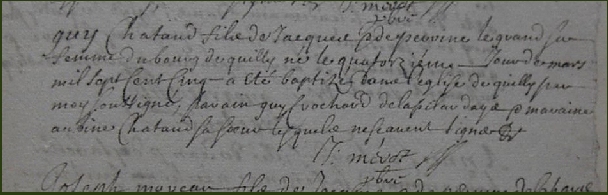 J. mérot
pbre
guy Chataud fils de Jacques et de perrine legrand sa
femme du bourg de quilly né le quatorzieme Jour de mars
mil sept cent cinq a été baptizé dans l'eglise de quilly par
moy soussigné, parain guy Crochard de la et maraine
Chataud sa soeur lesquels ne scavent signer
J. mérot
pbre
Joseph moreau fils de Jacq de